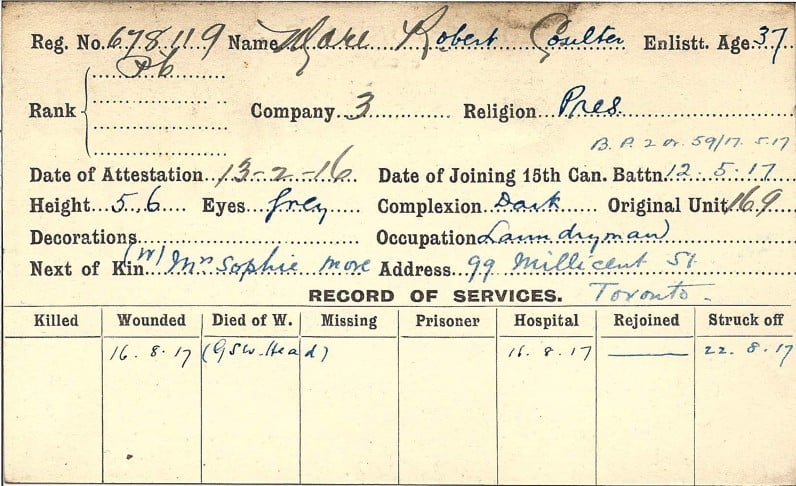 Reg. No. 678119 Name More Robert Coulter Enlistt. Age 37
Pte
Rank Company 3 Religion Pres
B.P. 2 Or 59/17. 5.17
Date of Attestation 13-2-16 Date of Joining 15th Can. Battn 12.5.17
Height 5,6 Eyes Grey Complexion Dark Original Unit 169
Decorations Occupation Laundryman
Next of Kin (W) Mrs Sophie More Address 99 Millicent St
RECORD OF SERVICES. Toronto.
Killed Wounded Died of W. Missing Prisoner Hospital Rejoined Struck off
16.8.17 (GSW. Head) 16.8.17 22.8.17